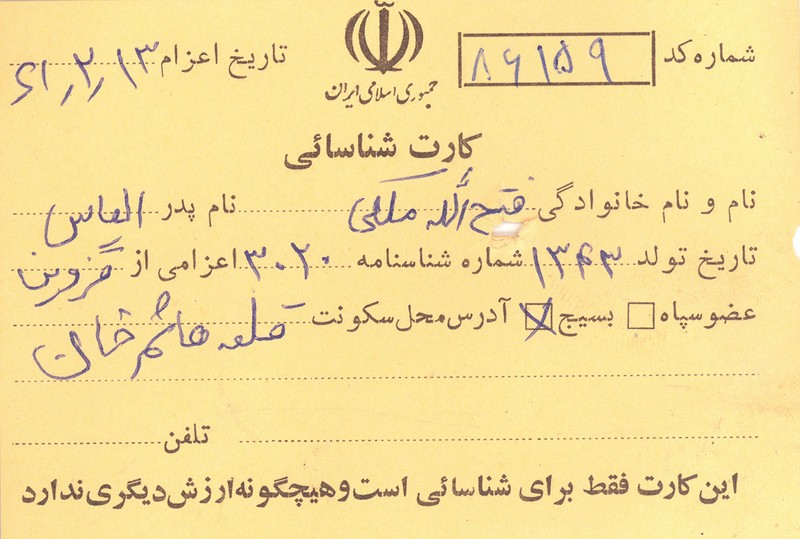 شماره کد ۸۶۱۵۹
جمهوری اسلامی ایران
تاریخ اعزام ۶۱٫۲٫۱۳
کارت شناسائی
نام و نام خانوادگی فتح الله ملکی نام پدر الماس
تاریخ تولد ۱۳۴۳ شماره شناسنامه ۳۰۲۰ اعزامی از قزوین
عضو سپاه بسیج آدرس محل سکونت قلعه هاشم خان
تلفن
این کارت فقط برای شناسائی است و هیچگونه ارزش دیگری ندارد